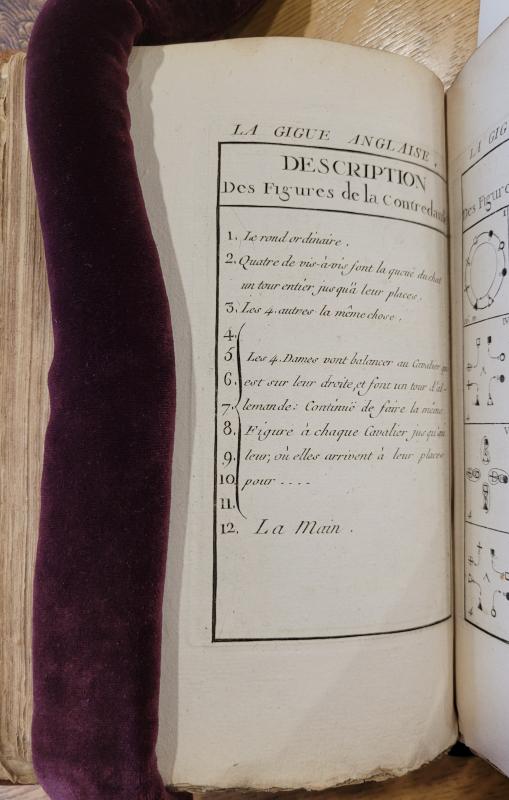 LA GIGUE ANGLAISE.
DESCRIPTION
Des Figures de la Contredanse
1. Le rond ordinaire.
2. Quatre de vis-à-vis font la queuë du chat
un tour entier jusqu'à leur places.
3. Les 4. autres la même chose.
4.
5 Les 4. Dames vont balancer au Cavalier qui
6. est sur leur droite, et font un tour d'al-
7. lemande: Continuë de faire la même
8. Figure à chaque Cavalier jusqu'au
9. leur, où elles arrivent à leur places
10. pour ....
11.
12. La Main.
LA GIG
Des Figures